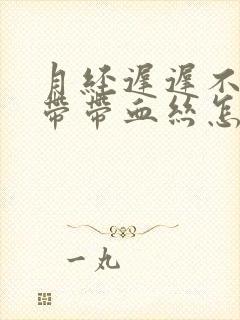 月經遲遲不
帶帶血絲怎
一丸